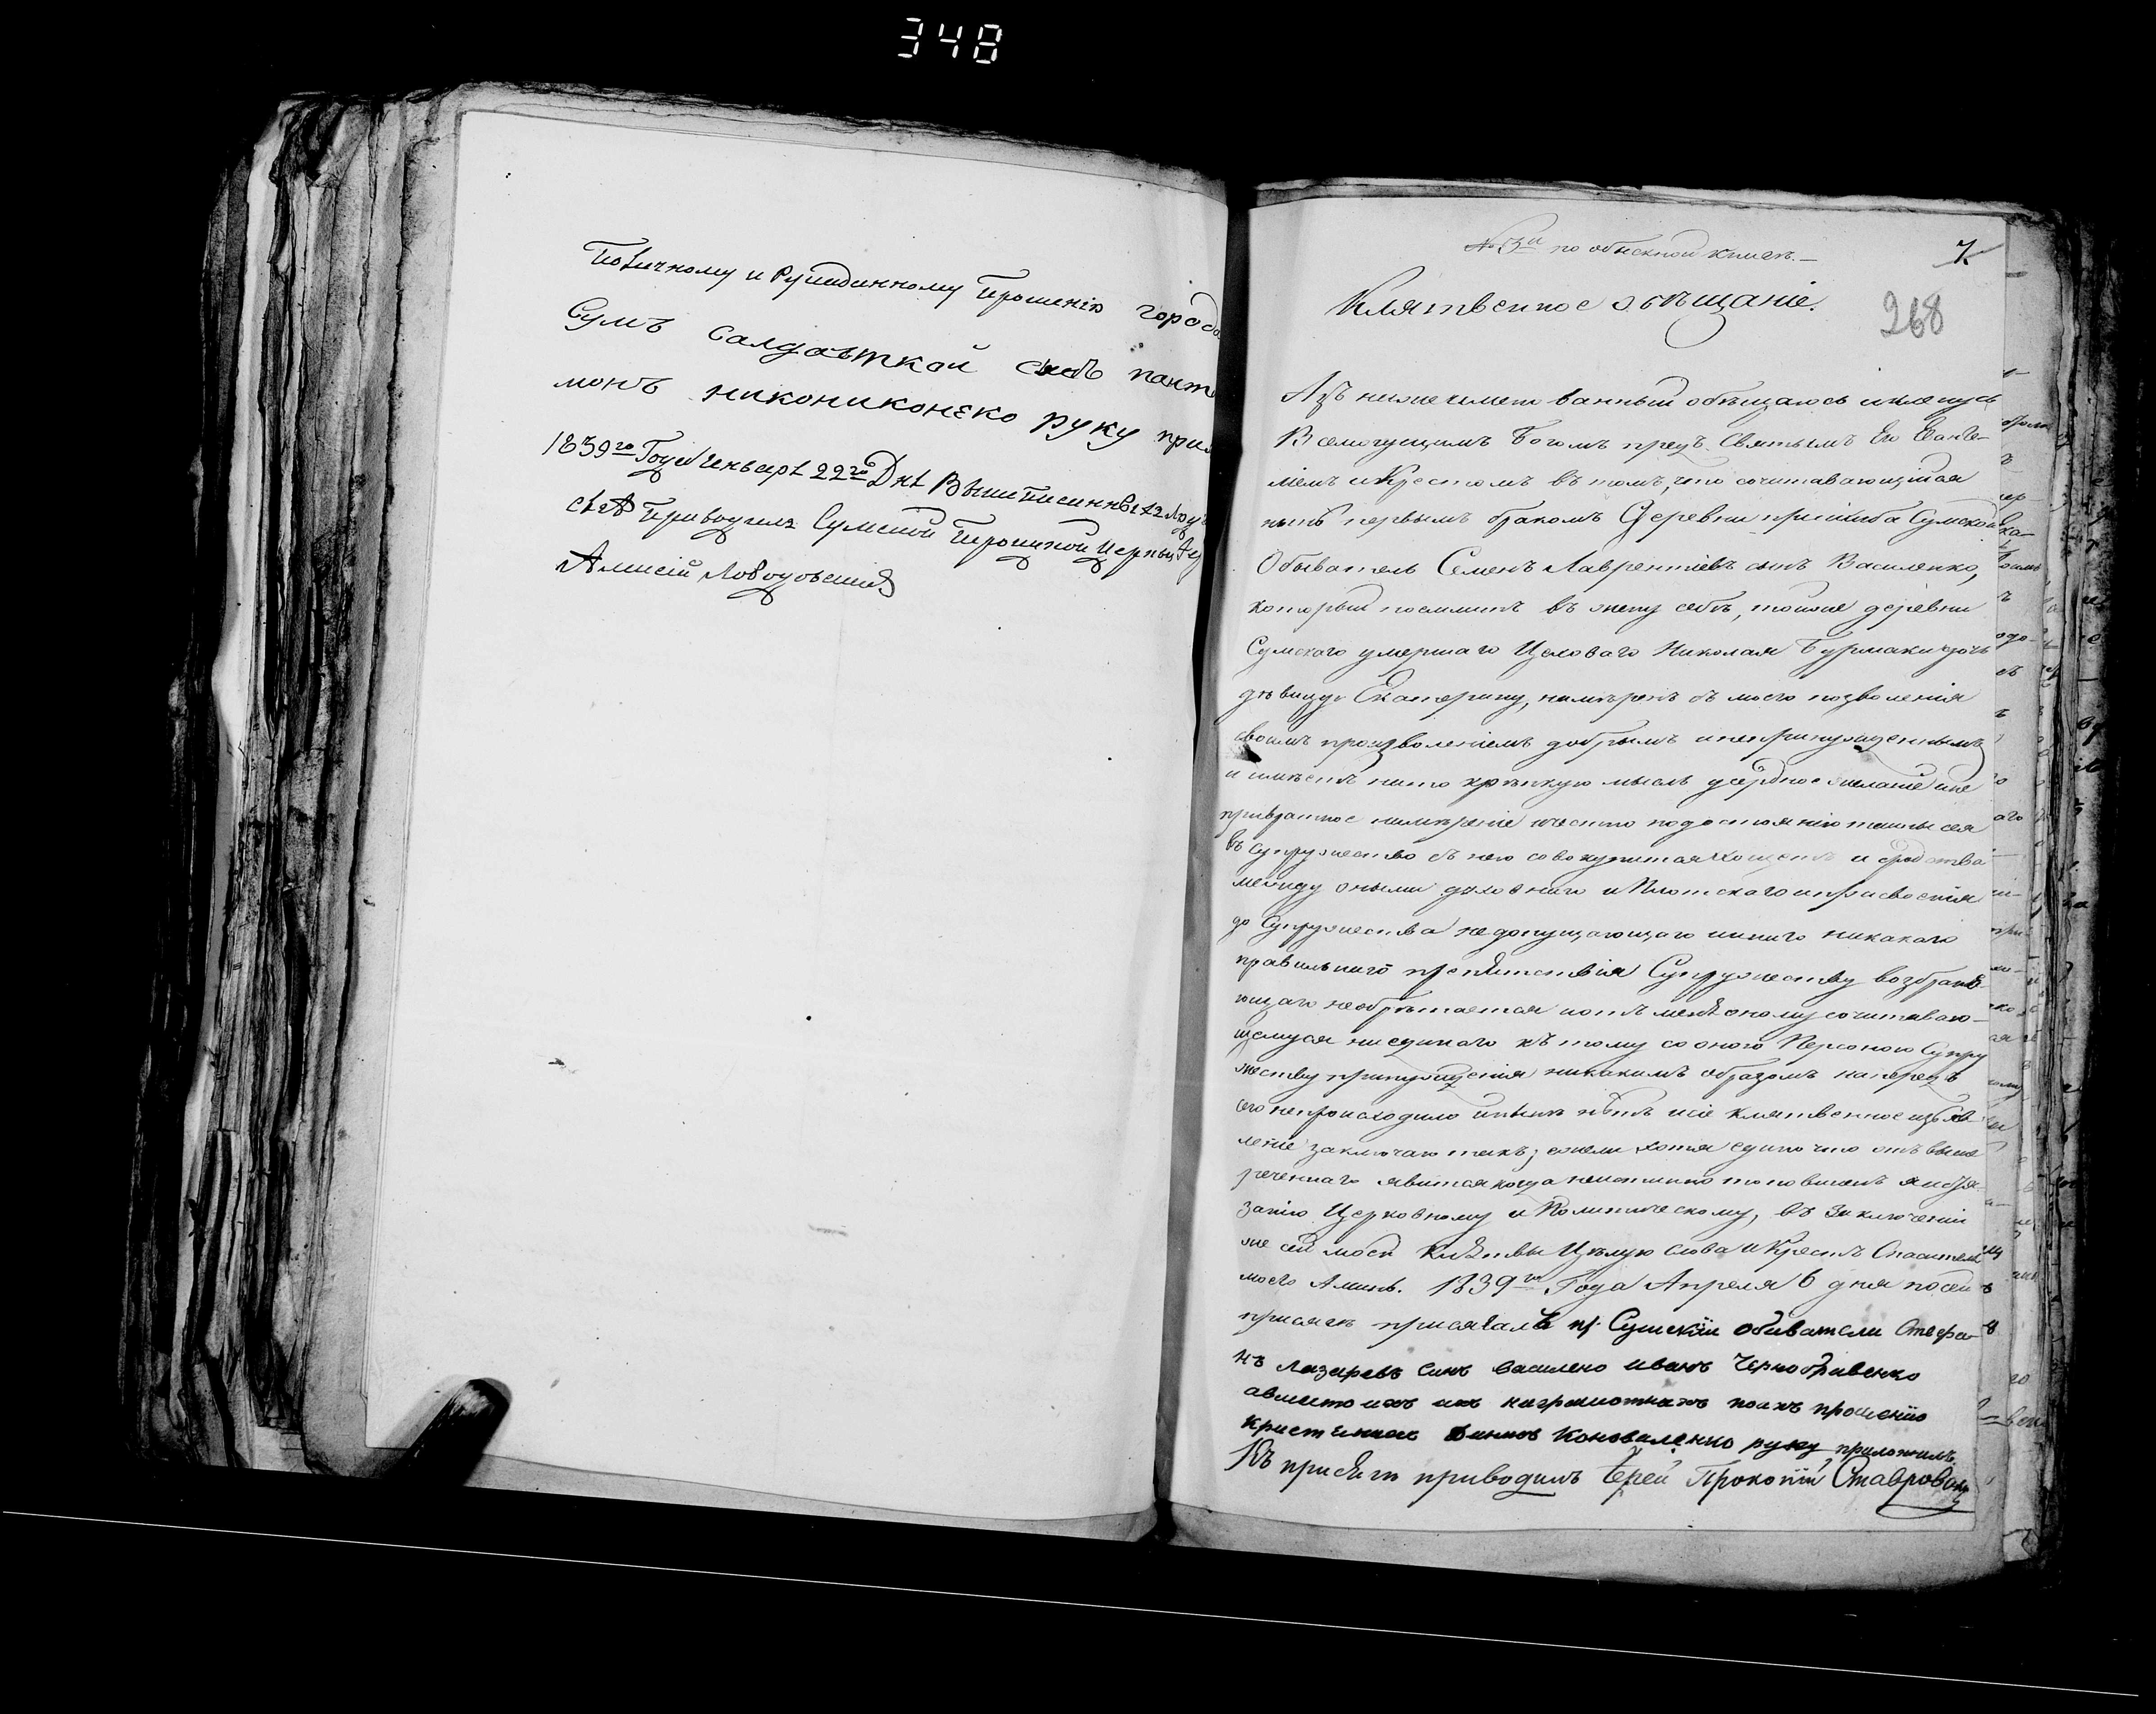 348
По личному и рукоданному прошенію города
Сумъ салдаткой сынъ
монъ руку
1839го Года Генваря 22го Дня Выше писанныхъ
приводилъ Сумской Троицкой Церкви
Алексій Лободовскій
№ 3й по обыскной книгѣ.
7
Клятвенное обѣщаніе.
268
Азъ нижеименованный обѣщаюсь и кленусь
Всемогущимъ Богомъ предъ Святымъ Его Еванге-
ліемъ и Крестомъ въ томъ, что сочитавающійся
нынѣ первымъ бракомъ Деревни Сумской
Обыватель Семенъ Лаврентіевъ сынъ Василенко,
который поемлитъ въ жену себѣ, тойже деревни
Сумского умершаго Цеховаго Николая Бурмаки дочь
дѣвицу Екатерину, намѣренъ съ моего позволенія
своимъ произволеніемъ добрымъ и непринужденнымъ
и имѣетъ на то крѣпкую мысль усердное желаніе и не
превратное намѣреніе и честно по достоянію тайны сея
въ супружество съ нею совокупится хощетъ и сродства
между оными духовнаго и Плотскаго и присвоенія
до Супружества не допущающаго и иного никакаго
правильнаго препятствія Супружеству возбраня-
ющаго необрѣтается и отъ меня оному сочитаваю-
щемуся ни единаго къ тому со оною Персоною Супру
жеству принужденія никакимъ образомъ напредъ
сего непроисходило и нынѣ нѣтъ и сіе клятвенное изъяв-
леніе заключаю такъ; ежели хотя едино что отъ выше
реченнаго явится когда неистинно то повиненъ я
занію Церковному и Политическому, въ заключеніи
же сей моей Клятвы Цѣлую Слова и Крестъ Спасителя
моего Аминь. 1839го Года Апреля 6 дня по сей
присягѣ присягали Сумскіи обиватели Стефа
нъ Лазаревъ синъ Василено иванъ Чернобривенко
авместо ихъ неграмотнихъ по ихъ прошенію
Коноваленко руку приложилъ.
Къ присягѣ приводилъ Іерей Прокопій Ставровскій